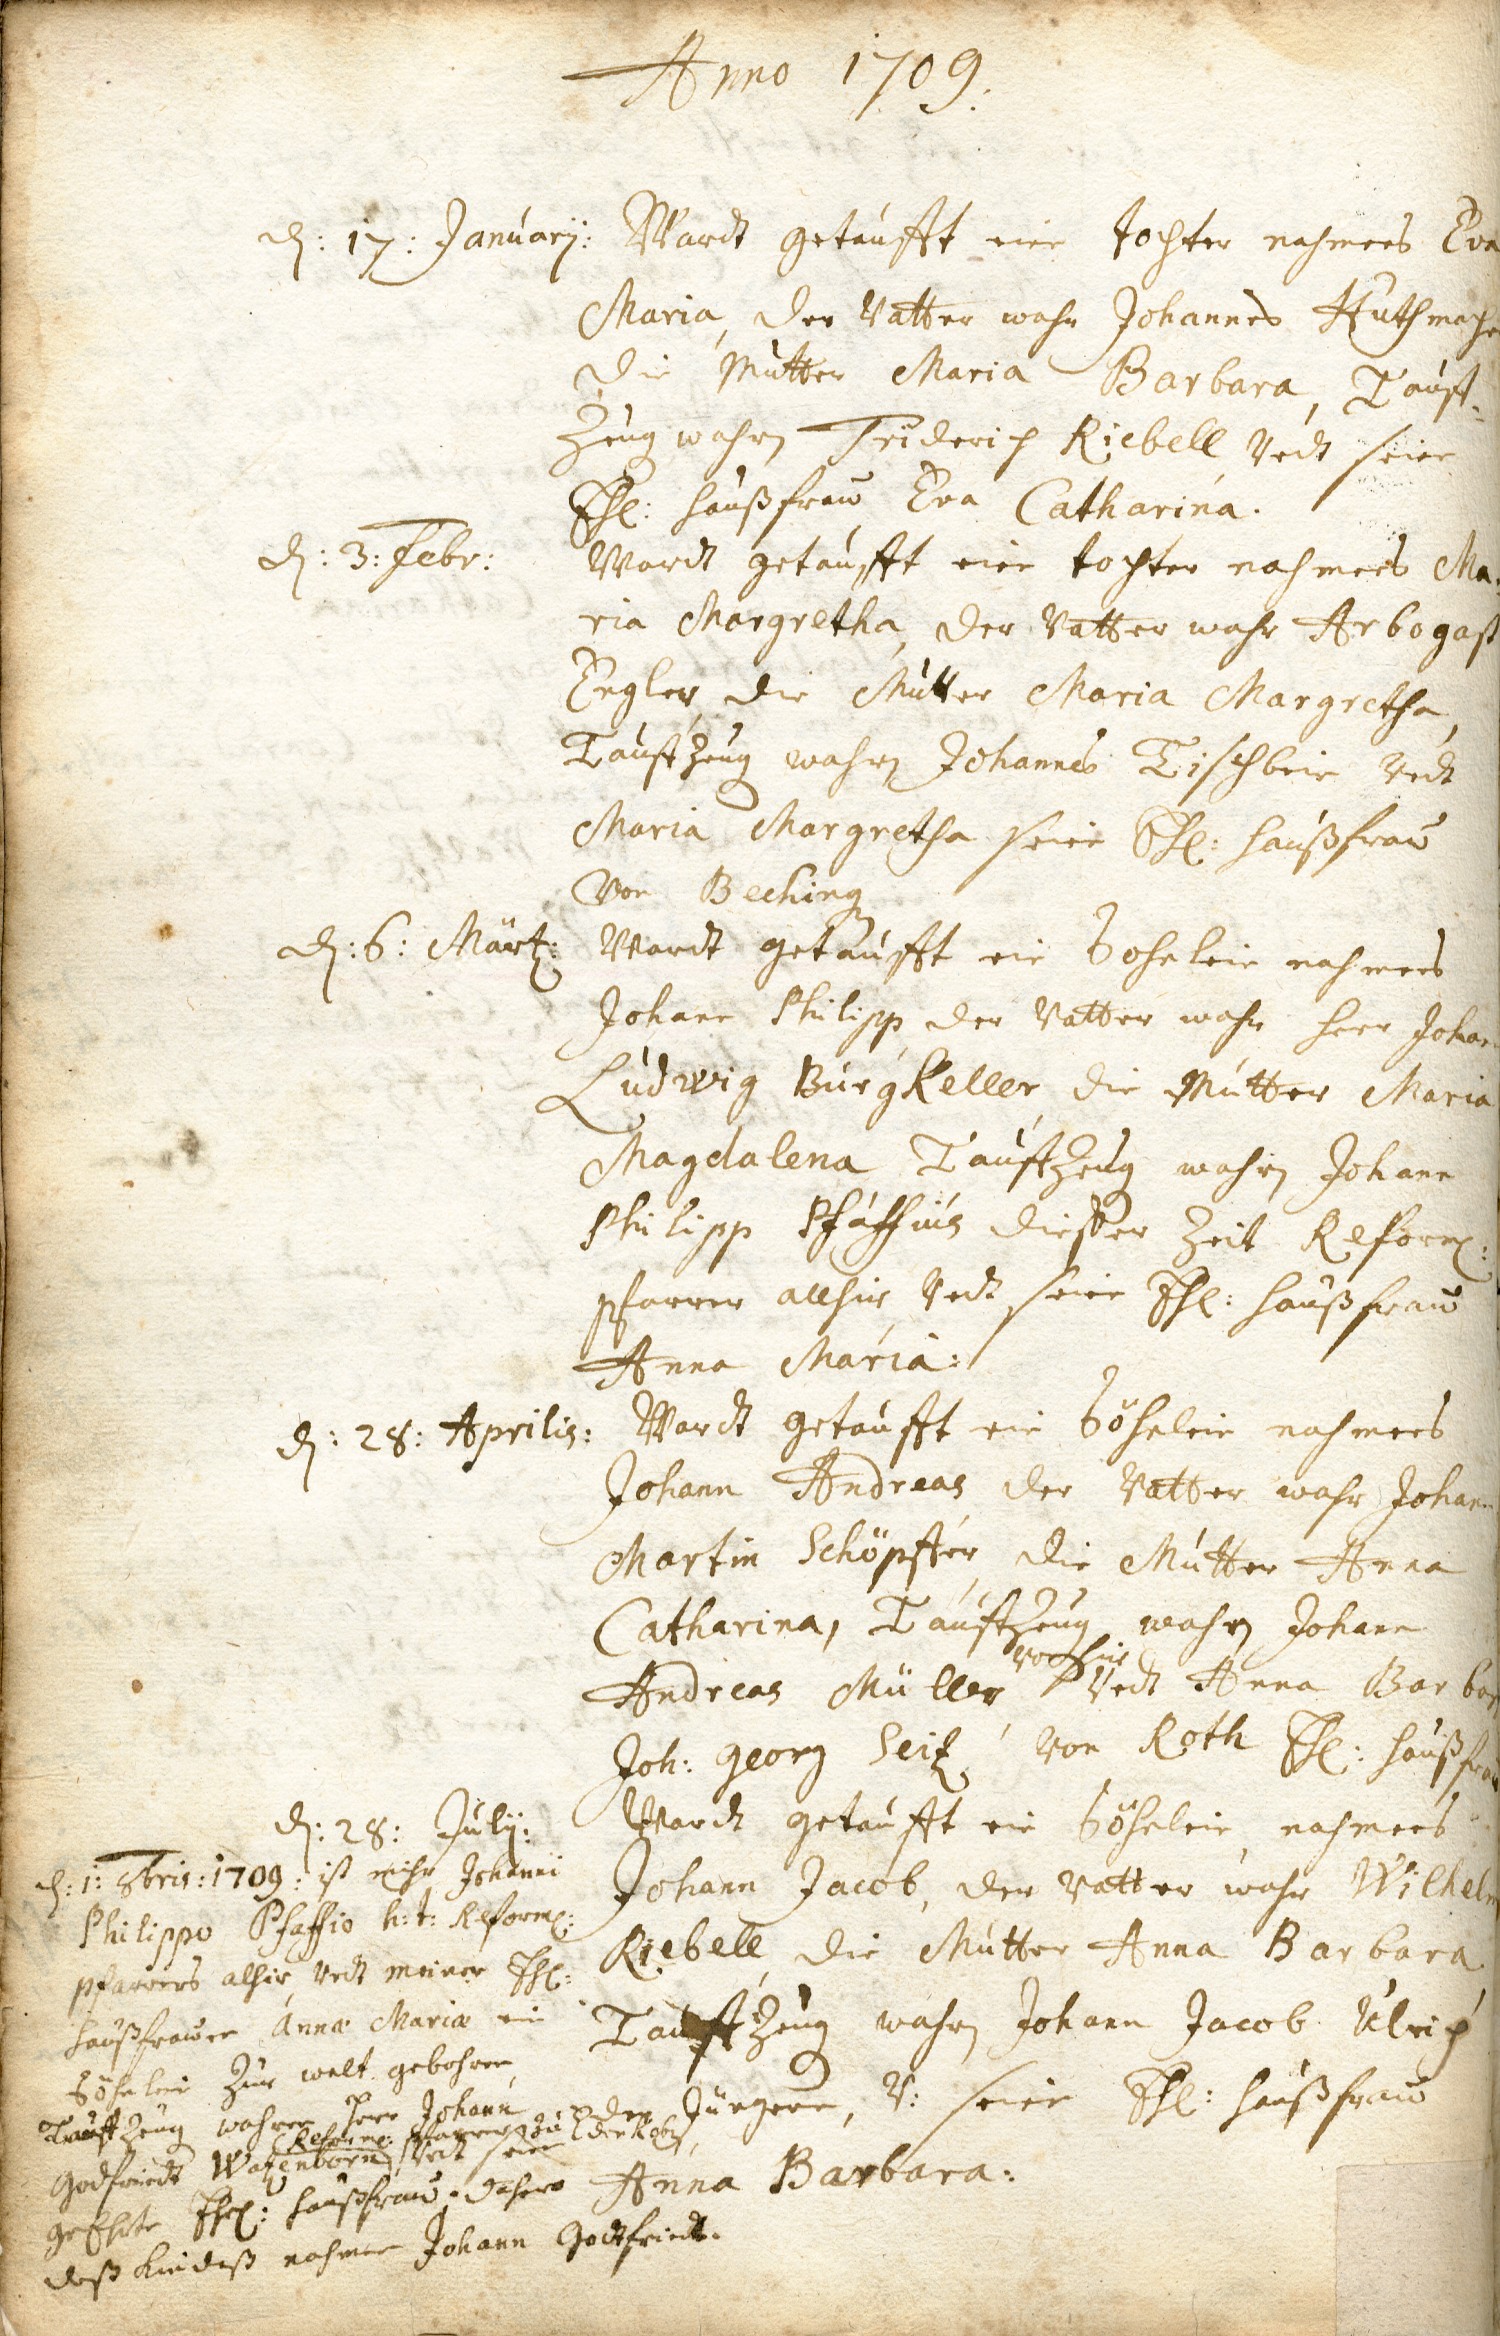 Anno 1709.
d: 17: Januarij: Wardt getaufft eine tochter nahmens Eva
Maria, der Vatter wahr Johannes Huthmacher
die Mutter Maria Barbara, Tauff-
Zeug wahrn Friderich Riebell Undt seine
Ehl: haußfraw Eva Catharina.
d: 3: Febr: Wardt getaufft eine tochter nahmens Ma:
ria Margretha, der Vatter wahr Arbogast
Engler, die Mutter Maria Margretha,
Tauffzeug wahrn Johannes Tischbein Undt
Maria Margretha seine Ehl: haußfraw
Von Beching
d: 6: Märtz: Wardt getaufft ein Sohnlein nahmens
Johann Philipp, der Vatter wahr herr Johann
Ludwig Burgkeller, die Mutter Maria
Magdalena Tauffzeug wahrn Johann
Philipp Pfaffius dießer Zeit Reform:
pfarrer allhir, Undt seine Ehl: haußfraw
Anna Maria:
d: 28: Aprilis: Wardt getaufft ein Söhnlein nahmens
Johann Andreas der Vatter wahr Johann
Martin Schöpffer, die Mutter Anna
Catharina, Tauffzeug wahrn Johann
Andreas Müller von hir Undt Anna Barbara
Joh: Georg Seitz, Von Roth Ehl: haußfraw
d: 28: Julij: Wardt getaufft ein Söhnlein nahmens
Johann Jacob, der Vatter wahr Wilhelm
Riebell, die Mutter Anna Barbara
Tauffzeug wahrn Johann Jacob Ulrich
der Jüngere, V: seine Ehl: haußfraw
Anna Barbara:
d: 1: 8bris: 1709: ist mihr Johanni
Philippo Pfaffio h: t: Reform:
pfarrers alhir, Undt meiner Ehl:
haußfrawen Annæ Mariæ ein
Söhnlein Zur welt gebohren,
Tauffzeug wahren Herr Johann
Godfriedt Watzenborn, Reform: pfarrer zu Undt seine
geehrte Ehl: haußfraw. daher
deß kindeß nahmen Johann Godtfriedt.